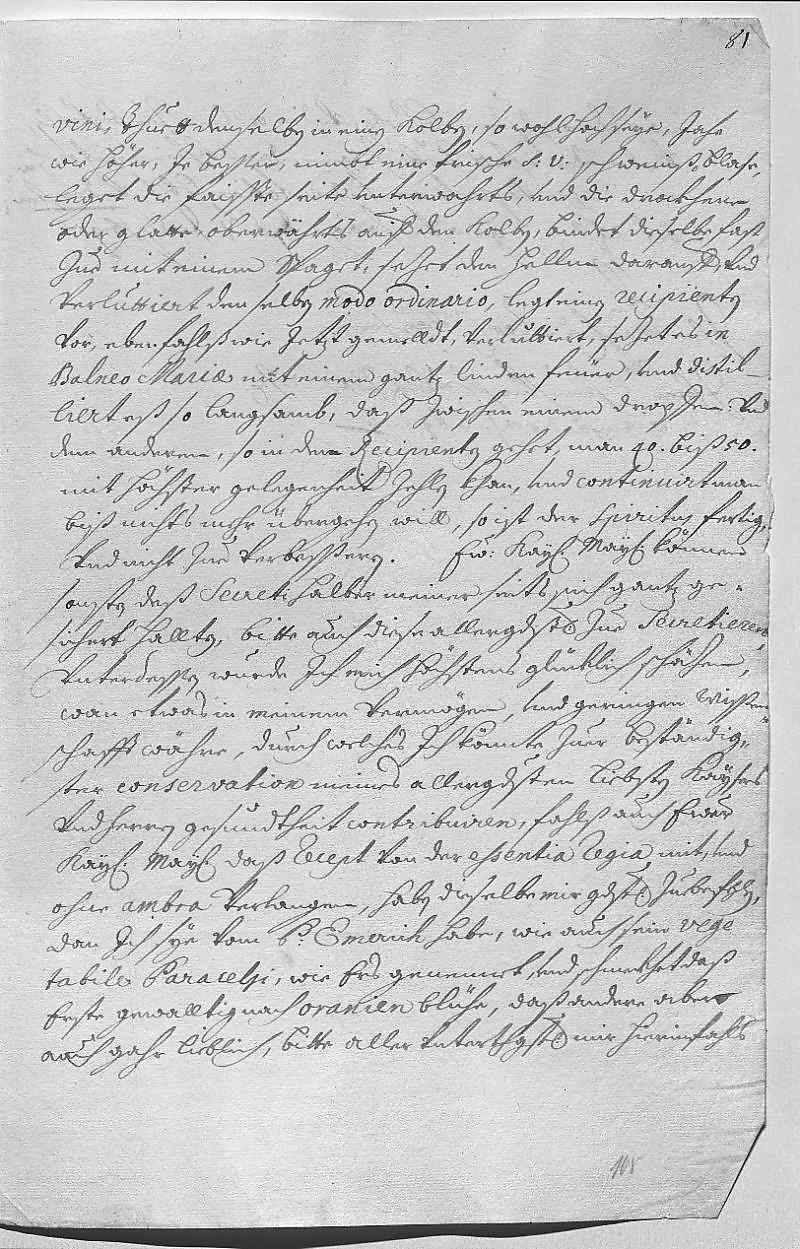 81
vini, thuet denselben in einen Kolben, so wohl hoch seye, Jahe
wie höher, Je besser, nimbt eine frische S: V: schweinß-blase,
leget die faiste seite unterwahrts, und die drockhene
oder glatte, oberwährts auf den Kolben, bindet dieselbe fast
Zue mit einem Spaget, sehet den Hellm darauff, und
Verluttiert denselben modo ordinario, legt einen recipienten
Vor, ebenfahlß wie Jetzt gemelldt, Verluttiert, setzet es in
Balneo Mariæ mit einem gantz linden feuer, und distil-
liert eß so langsamb, daß zwischen einem dropffen: und
dem anderen, so in den Recipienten gehet, man 40. biß 50.
mit höchster gelegenheit Zehlen khan, und continuirt man
biß nichts mehr übergehen will, so ist der Spiritus fertig,
Und nicht Zue Verbesseren. Ew: Kayß: Mayß: können
sonsten deß Secreti halber meiner seits sich gantz ge-
sichert hallten, bitte auch diese allergdste Zue Secretieren,
Unterdessen wurde Ich mich höchstens glücklich schäzen,
wan etwas in meinem Vermögen, und geringen Wissen-
schafft währe, durch welches Ich könnte Zuer beständig-
ster conservation meines allergdsten liebsten Kaysers
Und herren gesundtheit contribuiren, fahlß auch Ewer
Kayß: Mayß: daß Recept von der essentia regia, mit, und
ohne ambra Verlangen, haben dieselbe mir gdst Zue befehlen,
dan Ich sye vom P: Emerich habe, wie auch sein vege
tabile Paracelsi, wie Ers genennet, und schmekhet daß
Erste gewalltig nach oranien blühe, daß andere aber
auch gahr lieblich, bitte aller unterthgst mir hierinfahls
168